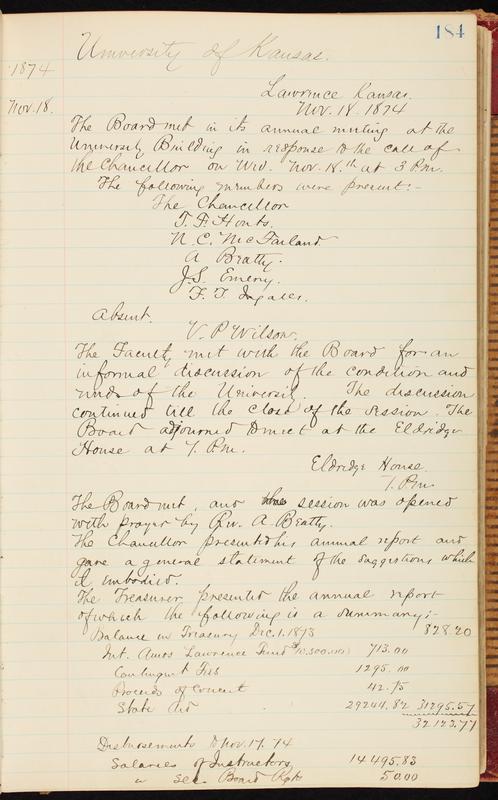 184
University of Kansas.
1874
Lawrence Kansas.
Nov. 18.
Nov. 18. 1874
The Board met in its annual meeting at the
University Building in response to the call of
the Chancellor on Wed. Nov. 18.th at 3 P.m.
The following members were present:-
The Chancellor
T. F. Houts.
N. C. McFarland
A Beatty.
J. S. Emery.
F. T. Ingalls.
Absent.
V. P Wilson.
The Faculty met with the Board for an
informal discussion of the condition and
needs of the University. The discussion
continued till the close of the session. The
Board adjourned to meet at the Eldridge
House at 7. P.m.
Eldridge House.
7. P.m.
The Board met, and session was opened
with prayer by Rev. A. Beatty.
The Chancellor presented his annual report and
gave a general statement of the suggestions which
it embodied.
The Treasurer presented the annual report
of which the following is a summary:-
Balance in Treasury Dec. 1. 1873 828.20
Int. Amos Lawrence Fund $10,500.00) 713.00
Contingent Fees 1295.00
Proceeds of Concert 42.75
State Aid 29244.82 31295.57
32123.77
Disbursements to Nov. 17. 74
Salaries of Instructors 14495.83
" Sec. Board Rgts 50.00